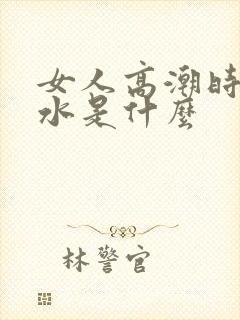 女人高潮時
水是什麼
林警官